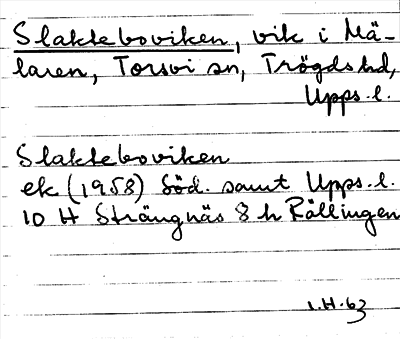 Slakteboviken, vik i Mä-
laren, Torsvi sn, Trögds hd,
Upps. l.
Slakteboviken
ek (1958) Söd. samt Upps. l.
10 H Strängnäs 8 h Rällingen
1.H.63